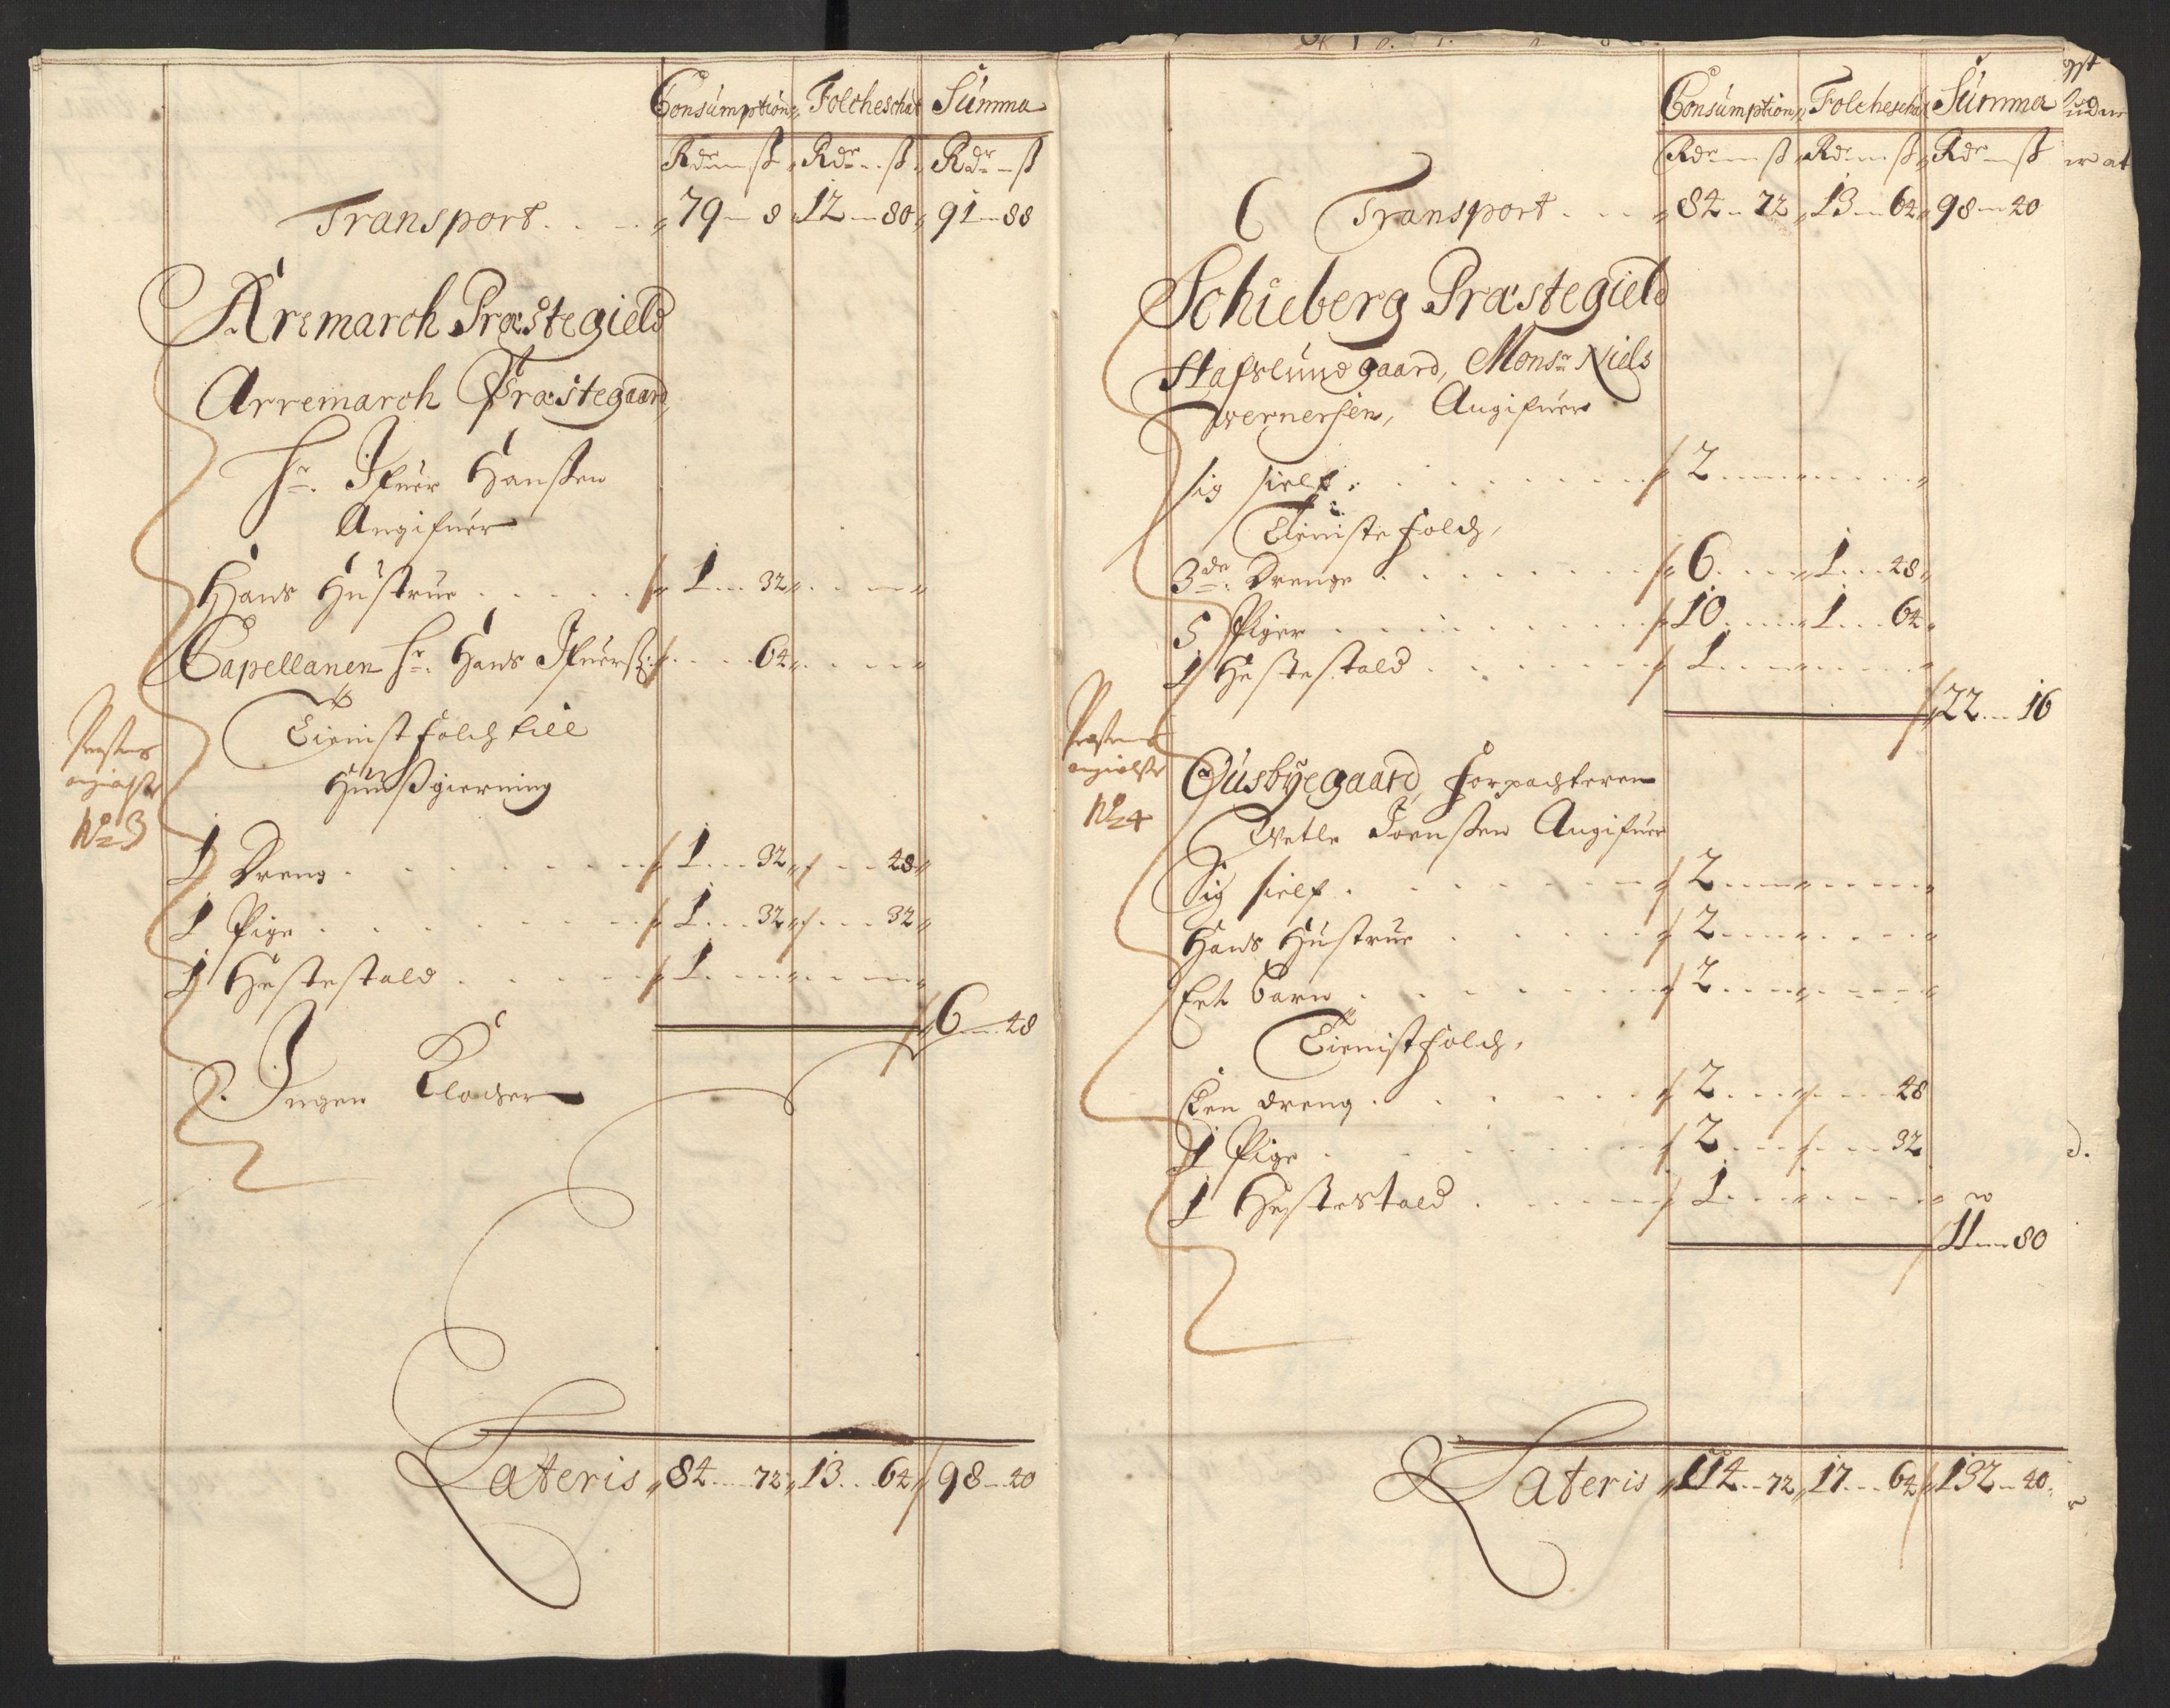 Consumption, Folcheschat Summa
Rdr ß Rdr ß Rdr ß
Transport 79 8 12 80 91 88
Aremarch Præstegield
Arremarch Præstegaard,
hr. Ifuer Hanßen
Angifuer
Hans Hustrue 1 32
Capellanen hr. Hans Ifuerß: 64
Tienist folch till
Hußgierning
Prestens
angiafst
No 3
1 Dreng 1 32 48
1 Pige 1 32 32
1 Hestestald 1
6 48
Ingen Klocher
Lateris 84 72 13 64 98 40
Consumption, Folcheschat Summa
Rdr ß Rdr ß Rdr ß
Transport 84 72 13 64 98 40
Schieberg Præstegield
Stafslund gaard, Monsr Niels
Wernersen, Angifuer
sig sielf 2
Tieniste folch,
3de Drenge 6 1 48
5 Piger 10 1 64
1 Hestestald 1
22 16
Prestens
angiafst
No 4
Guusbyegaard, forpachteren
Wetle Joenßen Angifuer
Sig sielf 2
Hans Hustrue 2
Eet barn 2
Tienistfolch,
Een dreng 2 48
1 Pige 2 32
1 Hestestald 1
11 80
Lateris 114 72 17 64 132 40